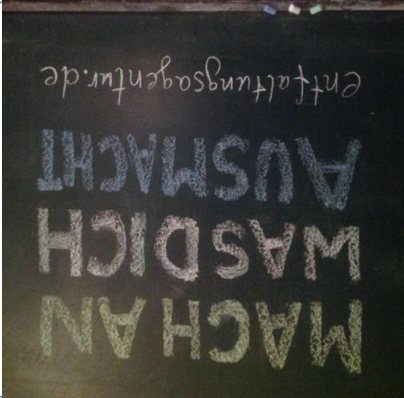 MACH AN
WAS DICH
AUSMACHT
entfaltungsagentur.de